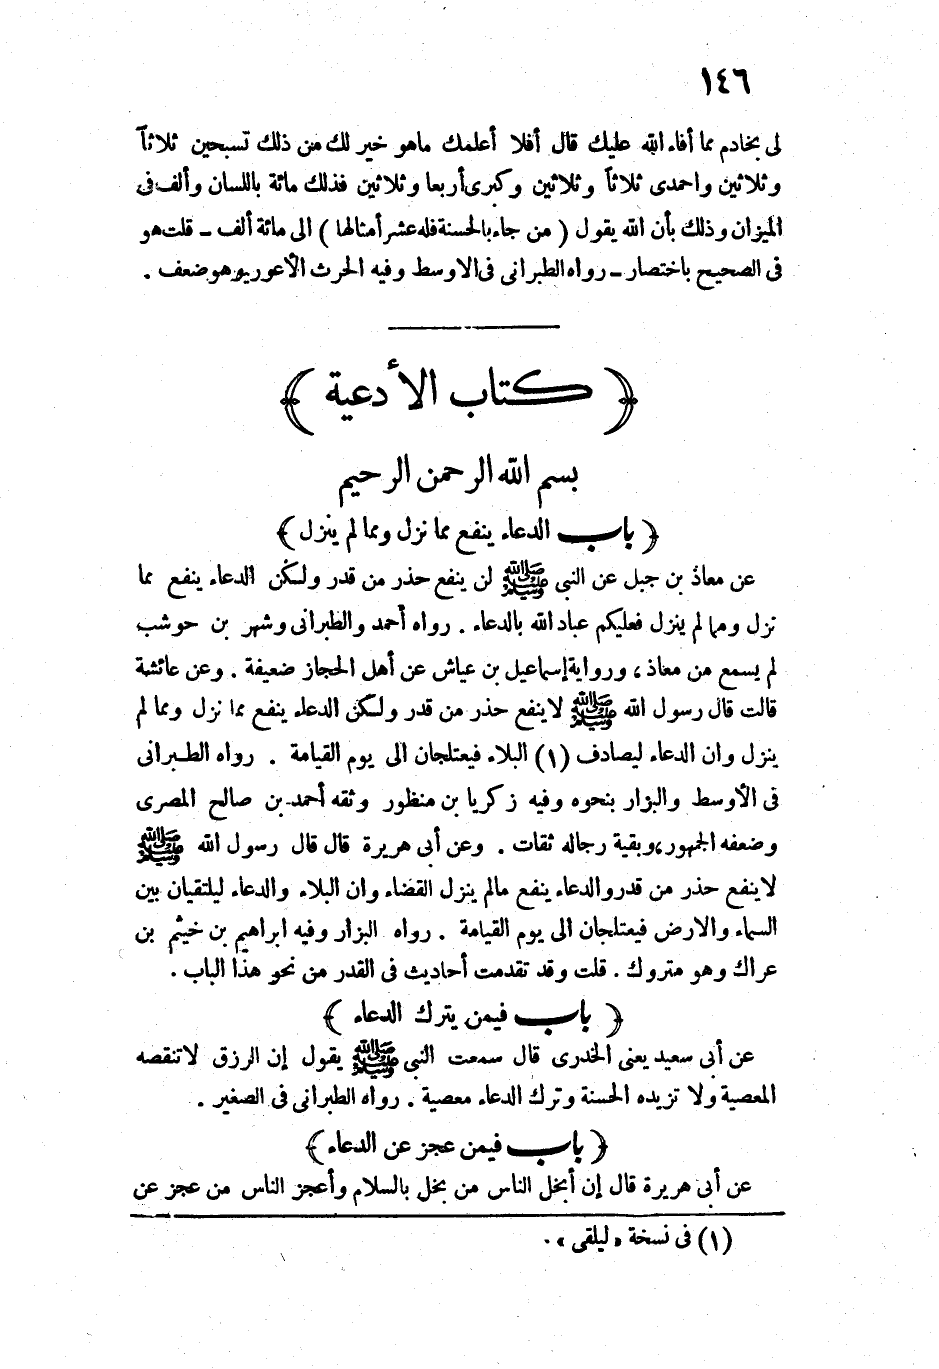 ١٤٦
لى بخادم مما أفاء الله عليك قال أفلا أعلمك ماهو خير لك من ذلك تسبحين ثلاثاً
وثلاثين واحمدى ثلاثاً وثلاثين وكبرى أربعا وثلاثين فذلك مائة باللسان وألف فى
الميزان وذلك بأن الله يقول ( من جاء بالحسنة فله عشر أمثالها ) الى مائة ألف ــ قلت هو
فى الصحيح باختصار ــ رواه الطبرانى فى الاوسط وفيه الحرث الأعور وهو ضعف .
﴿ كتاب الأدعية ﴾
بسم الله الرحمن الرحيم
﴿ باب الدعاء ينفع مما نزل ومما لم ينزل ﴾
عن معاذ بن جبل عن النبى ﷺ لن ينفع حذر من قدر ولكن الدعاء ينفع مما
نزل ومما لم ينزل فعليكم عباد الله بالدعاء . رواه أحمد والطبرانى وشهر بن حوشب
لم يسمع من معاذ ، ورواية إسماعيل بن عياش عن أهل الحجاز ضعيفة . وعن عائشة
قالت قال رسول الله ﷺ لاينفع حذر من قدر ولكن الدعاء ينفع مما نزل ومما لم
ينزل وان الدعاء ليصادف (١) البلاء فيعتلجان الى يوم القيامة . رواه الطبرانى
فى الأوسط والبزار بنحوه وفيه زكريا بن منظور وثقه أحمد بن صالح المصرى
وضعفه الجمهور ، وبقية رجاله ثقات . وعن أبى هريرة قال قال رسول الله ﷺ
لاينفع حذر من قدر والدعاء ينفع مالم ينزل القضاء وان البلاء والدعاء ليلتقيان بين
السماء والارض فيعتلجان الى يوم القيامة . رواه البزار وفيه ابراهيم بن خيثم بن
عراك وهو متروك . قلت وقد تقدمت أحاديث فى القدر من نحو هذا الباب .
﴿ باب فيمن يترك الدعاء ﴾
عن أبى سعيد يعنى الخدرى قال سمعت النبى ﷺ يقول إن الرزق لاتنقصه
المعصية ولا تزيده الحسنة وترك الدعاء معصية . رواه الطبرانى فى الصغير .
﴿ باب فيمن عجز عن الدعاء ﴾
عن أبى هريرة قال إن أبخل الناس من بخل بالسلام وأعجز الناس من عجز عن
(١) فى نسخة «ليلقى» .